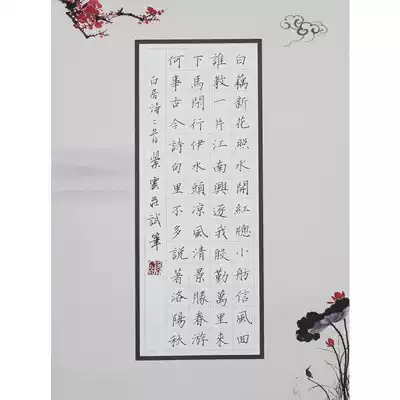 白藕新花照水開紅牕小舫信風回
誰教一片江南興逐我殷勤萬里來
下馬閑行伊水頭凉風清景勝春游
何事古今詩句里不多說著洛陽秋
白居詩二首 紫雲莊試筆